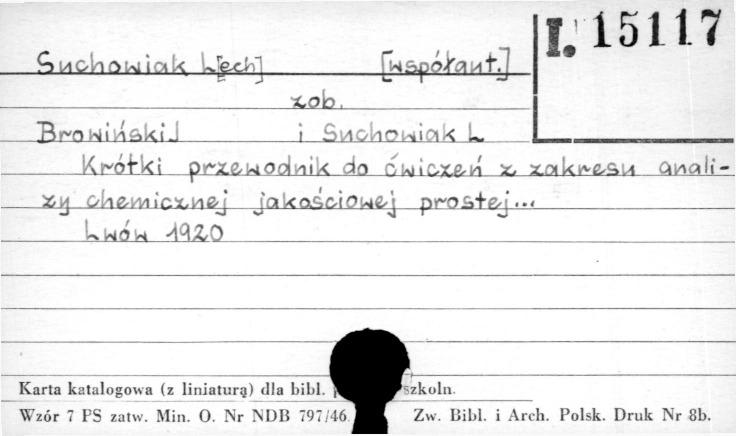 I. 15117
Suchowiak L[ech] [współaut.]
zob.
Browiński J i Suchowiak L
Krótki przewodnik do ćwiczeń z zakresu anali-
zy chemicznej jakościowej prostej...
Lwów 1920
Karta katalogowa (z liniaturą) dla bibl. szkoln.
Wzór 7 PS zatw. Min. O. Nr NDB 797/46. Zw. Bibl. i Arch. Polsk. Druk Nr 8b.